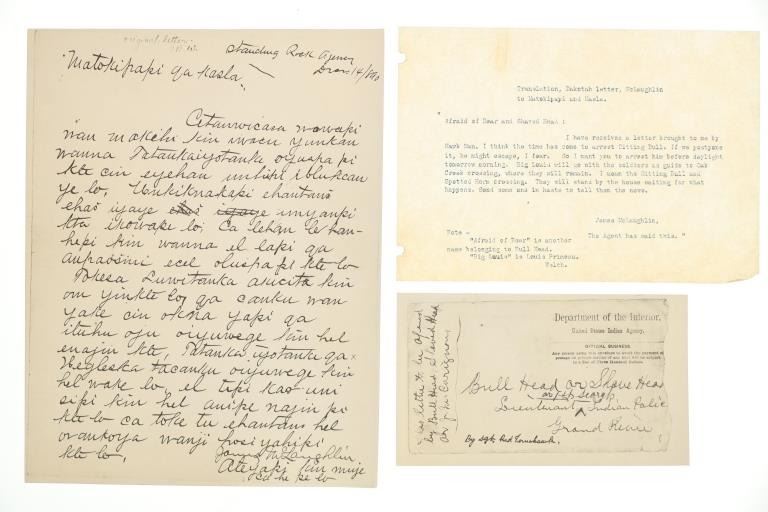 original letter
Standing Rock Agency
Decr 14/1890
"Matokipapi qa Kasla"
Cetanwicasa wowapi
wan makehi kin iwacu yunkan
wanna Tatankaiyotanke oyuspa pi
kte cin eyehan
ye lo, Unkiknakapi ehantans
ehas iyaye ehas iyaye unyanpi
kta ikowape lo. Ca lehan le han-
hepi kin wanna el lapi qa
anpaosini ecel oluspa pi kte lo
Tokesa Luwitanka asucita kin
om yinkte lo, qa canku wan
yake cin okna yapi qa
oju oiyuwege kin hel
enajin kte, Tatanka iyotanke qa
Hegleska tacanku oiyuwege kin
hel wake lo, el tipi kas uni
sipi kin hel anipe najin pi
kte lo ca toke tu ehantans hel
wanji hosiyahipi
kte lo,
James McLaughlin
Ateyapi kin miye
ca he pe lo
Translation, Dakotah letter, McLaughlin
to Matokipapi and Kasla.
Afraid of Bear and Shaved Head :
I have received a letter brought to me by
Hawk Man. I think the time has come to arrest Sitting Bull. If we postpone
it, he might escape, I fear. So I want you to arrest him before daylight
tomorrow morning. Big Louis will go with the soldiers as guide to Oak
Creek crossing, where they will remain. I mean the Sitting Bull and
Spotted Horn crossing. They will stand by the house waiting for what
happens. Send some one in haste to tell them the news.
James McLaughlin,
The Agent has said this. "
Note -
"Afraid of Bear" is another
name belonging to Bull Head.
"Big Louis" is Louis Primeau.
Welch.
Department of the Interior,
United States Indian Agency.
OFFICIAL BUSINESS.
Any person using this envelope to avoid the payment of
postage on private matter of any kind will be subject
to a fine of Three Hundred Dollars.
Bull Head or Shave Head
or 1st Sergt
Lieutenant Indian Police
Grand River
By Sgt. Red Tomahawk.
letter to be opened
by Bull Head, Shaved Head
or J. M. Carignan